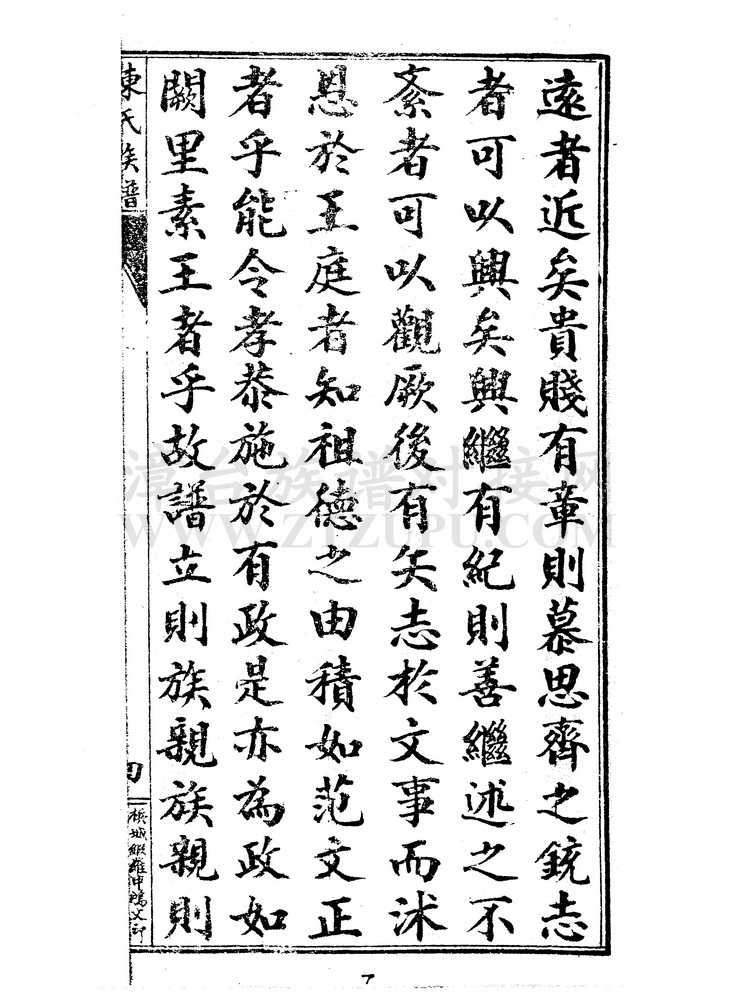 遠者近矣貴賤有章則慕思齊之銳志
者可以興矣興繼有紀則善繼述之不
紊者可以觀厥後有矢志於文事而沭
恩於王庭者知祖德之由積如范文正
者乎能令孝恭施於有政是亦為政如
闕里素王者乎故譜立則族親族親則
陳氏族譜
漳台族谱对接网
WWW.ZTZUPU.COM
7